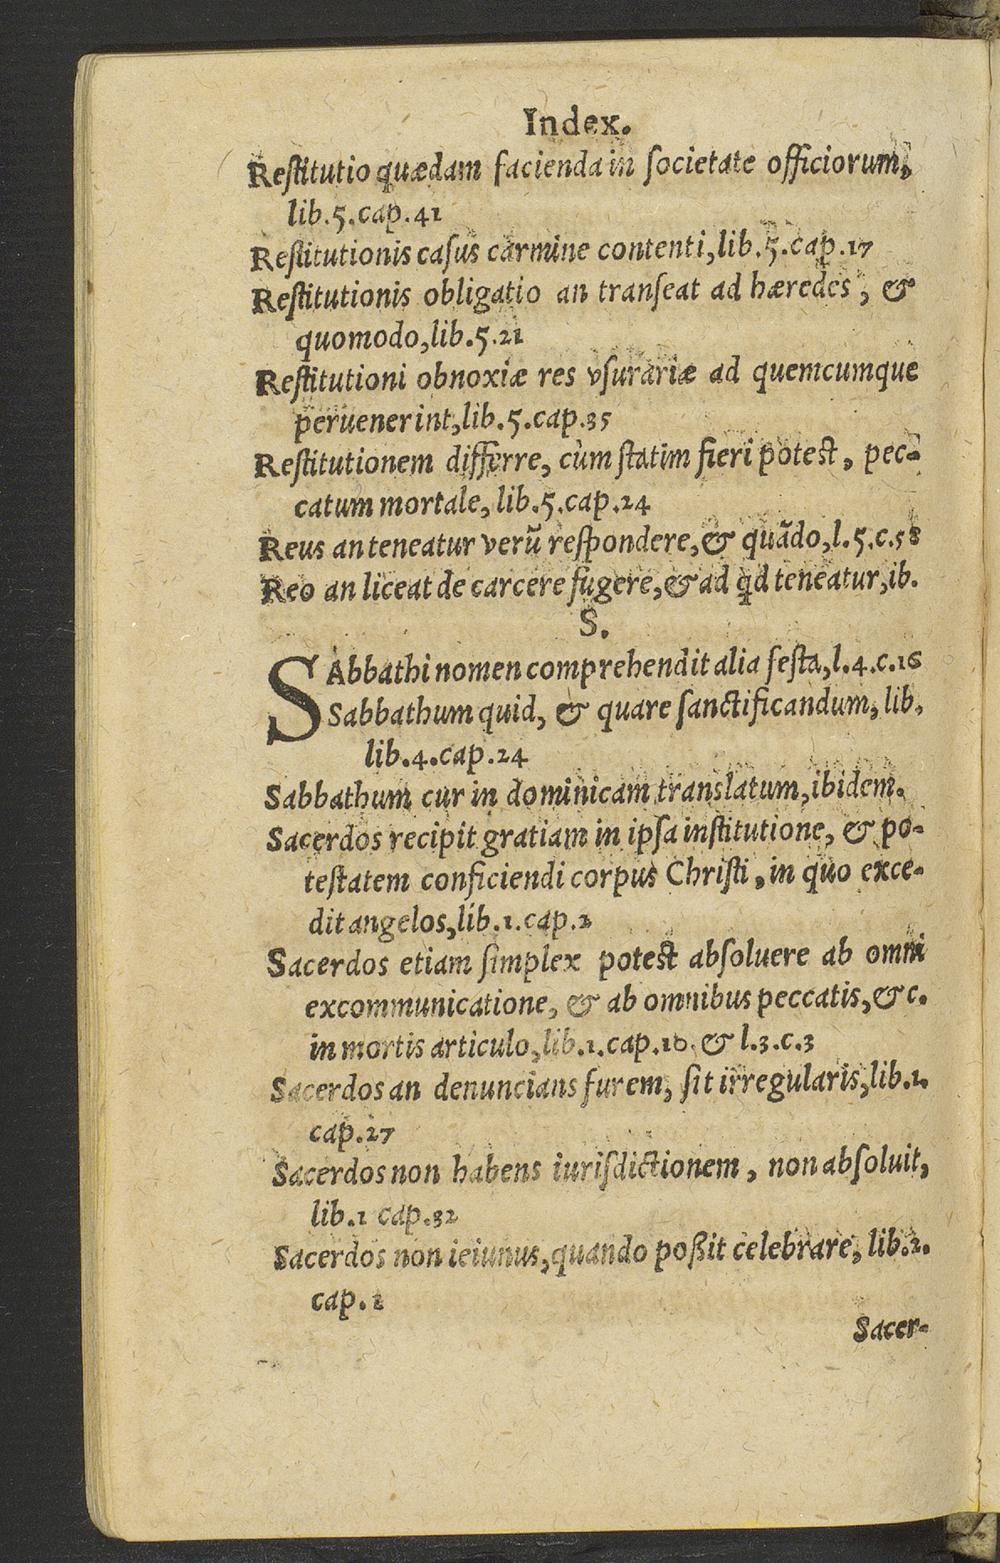 Index.
Reſtitutio quædam facienda in ſocietate officiorum,
lib.5.cap.41
Reſtitutionis caſus carmine contenti, lib.5.cap.17
Reſtitutionis obligatio an tranſeat ad hæredes, &
quomodo, lib.5.21
Reſtitutioni obnoxiæ res vſurariæ ad quemcumque
peruenerint, lib.5.cap.35
Reſtitutionem differre, cùm ſtatim fieri poteſt, pec-
catum mortale, lib.5.cap.24
Reus an teneatur verũ reſpondere, & quãdo, l.5.c.58
Reo an liceat de carcere fugere, & ad qd teneatur, ib.
S.
SAbbathi nomen comprehendit alia feſta, l.4.c.16
Sabbathum quid, & quare ſanctificandum, lib,
lib.4.cap.24
Sabbathum cur in dominicam translatum, ibidem.
Sacerdos recipit gratiam in ipſa inſtitutione, & po-
teſtatem conficiendi corpus Chriſti, in quo exce-
dit angelos, lib.1.cap.2
Sacerdos etiam ſimplex poteſt abſoluere ab omni
excommunicatione, & ab omnibus peccatis, &c.
in mortis articulo, lib.1.cap.10. & l.3.c.3
Sacerdos an denuncians furem, ſit irregularis, lib.1.
cap.27
Sacerdos non habens iuriſdictionem, non abſoluit,
lib.1 cap.32
Sacerdos non ieiunus, quando poßit celebrare, lib.2.
cap.
Sacer-